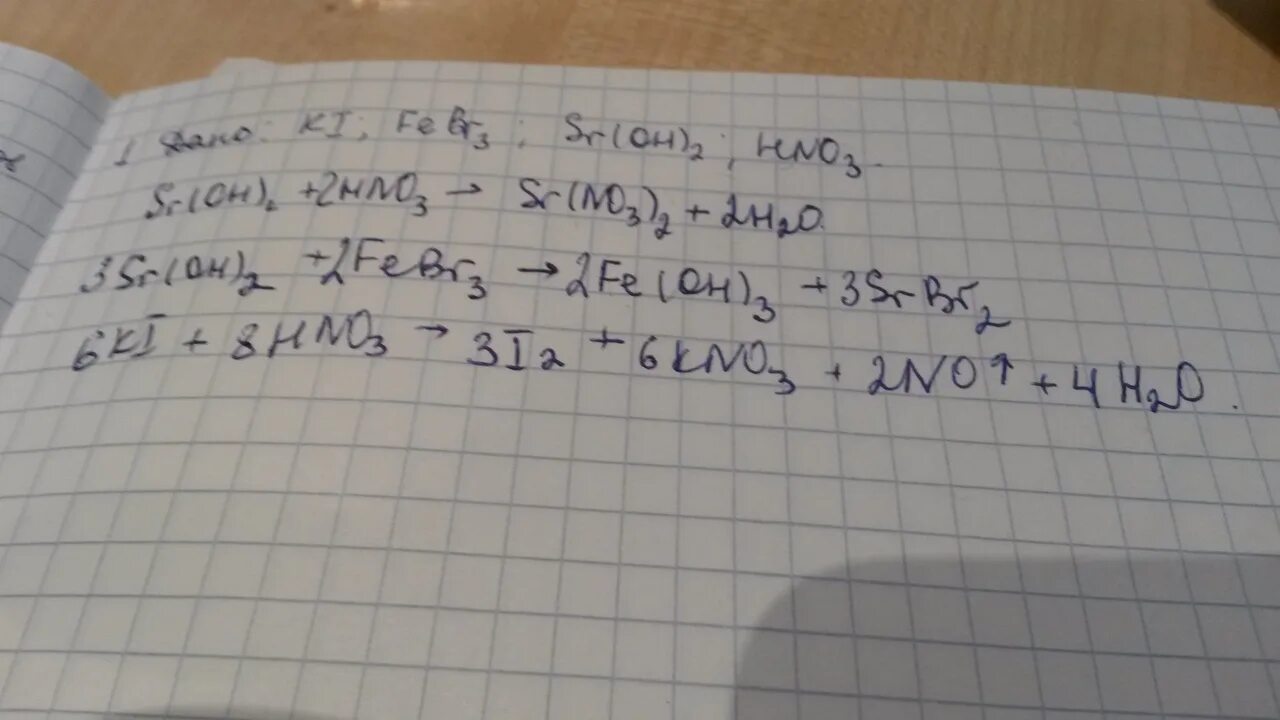 1 Дано: KI; FeBr₃; Sr(OH)₂; HNO₃.
Sr(OH)₂ +2HNO₃ → Sr(NO₃)₂ + 2H₂O.
3Sr(OH)₂ +2FeBr₃ → 2Fe(OH)₃ + 3SrBr₂
6KI + 8HNO₃ → 3I₂ + 6KNO₃ + 2NO↑ + 4H₂O.